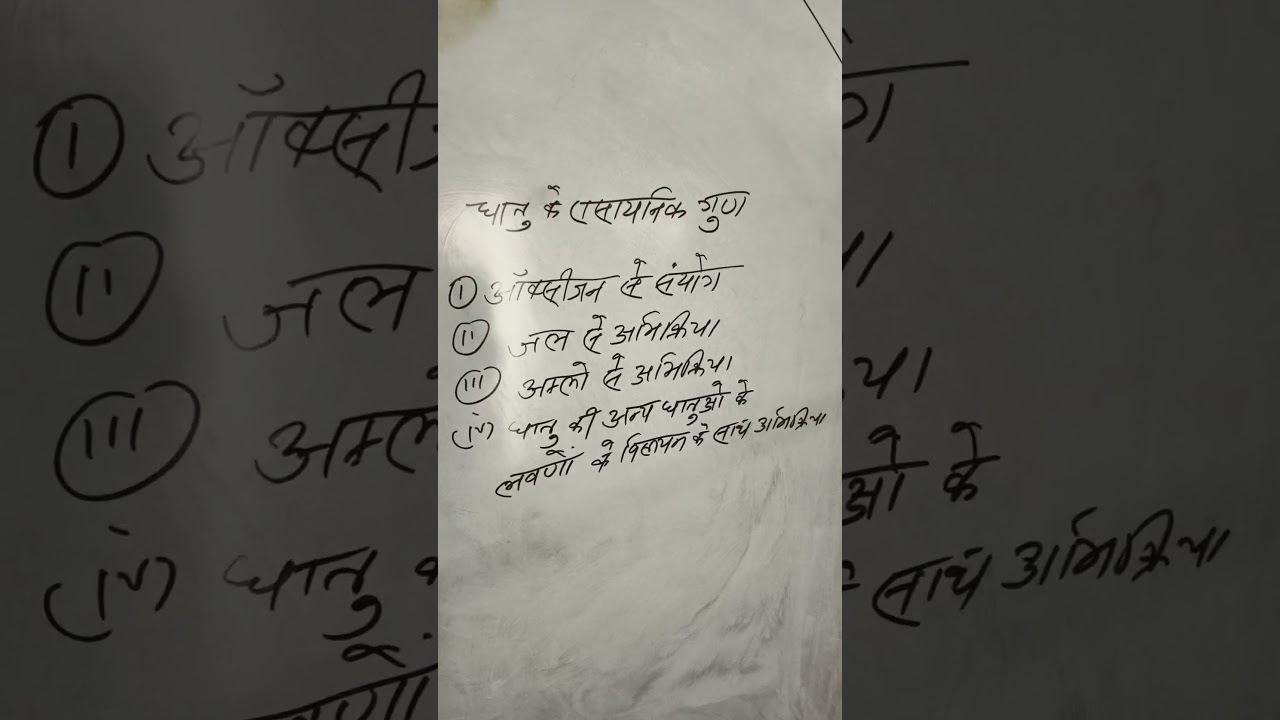 धातु के रासायनिक गुण
(I) ऑक्सीजन से संयोग
(II) जल से अभिक्रिया
(III) अम्लो से अभिक्रिया
(iv) धातु की अन्य धातुओ के
लवणों के विलायन के साथ अभिक्रिया